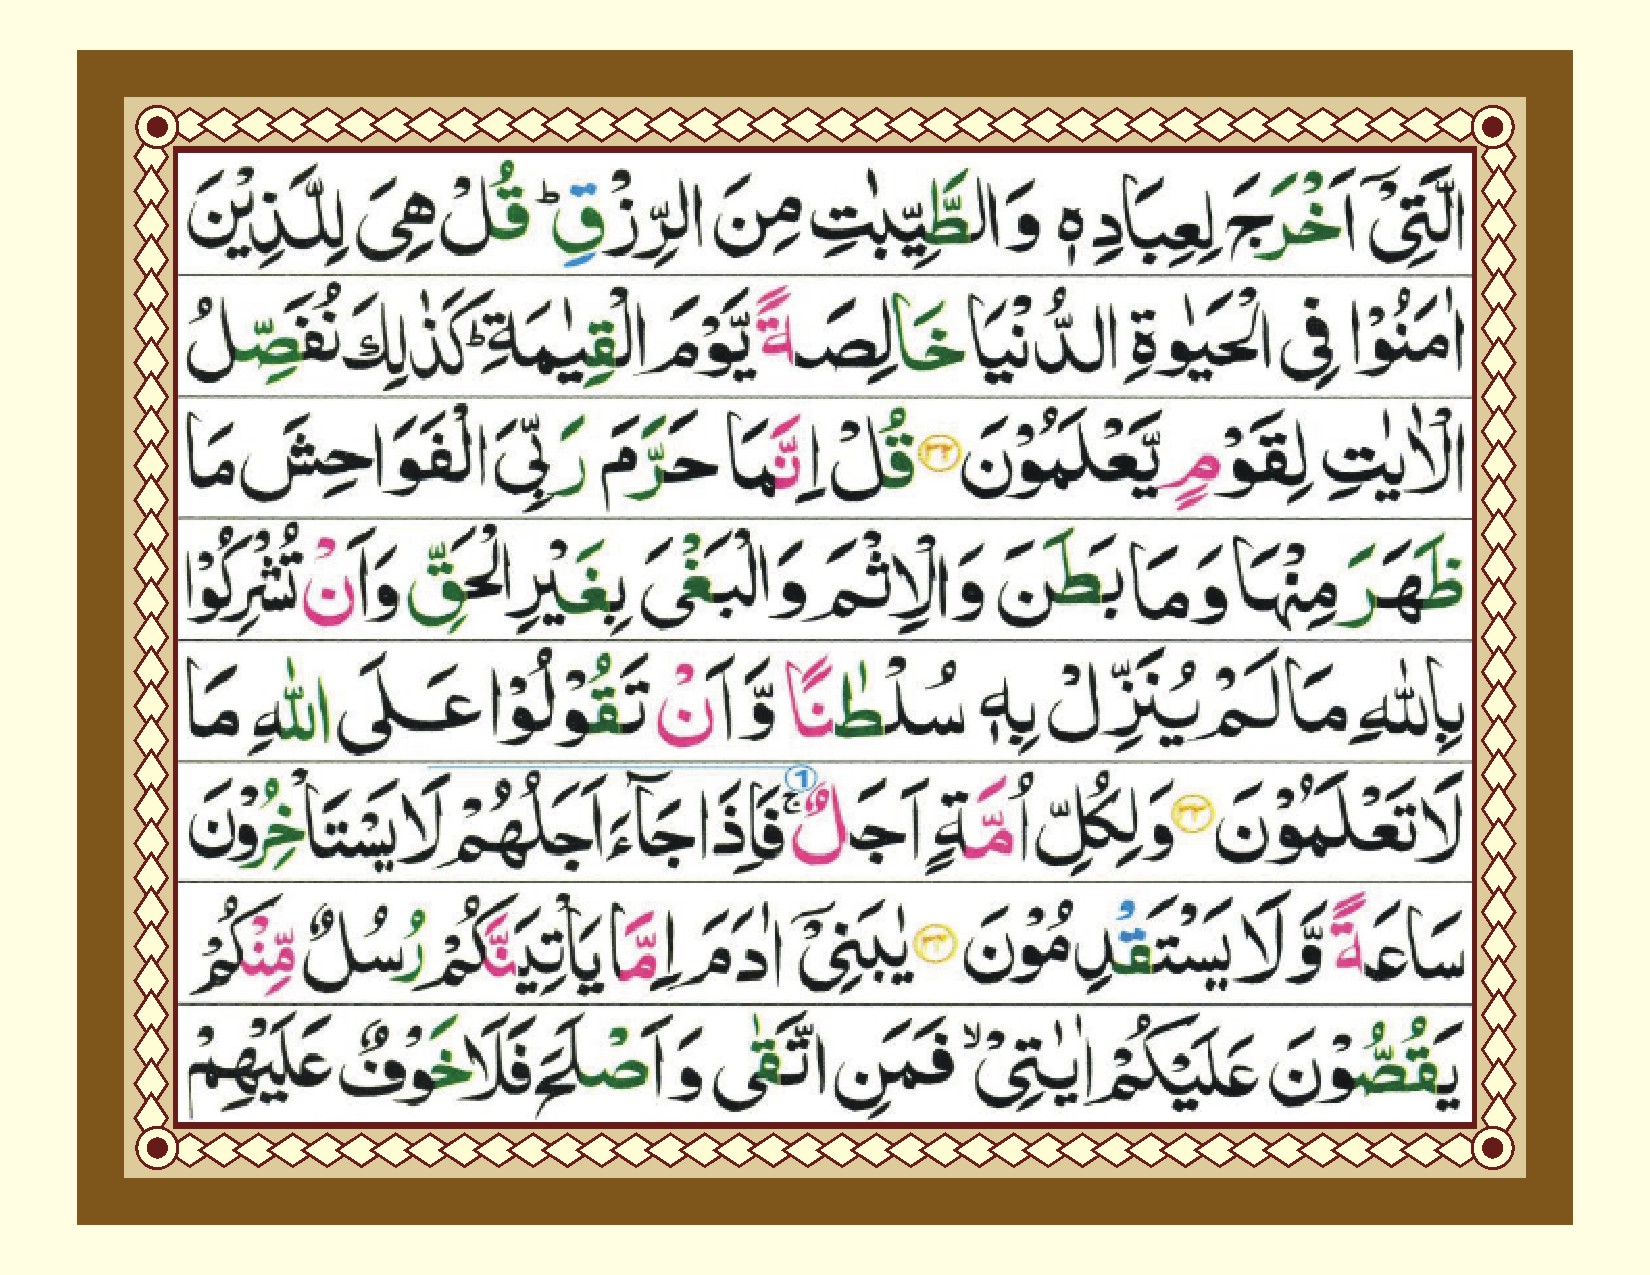 الَّتِیْۤ اَخْرَجَ لِعِبَادِهٖ وَالطَّیِّبٰتِ مِنَ الرِّزْقِ ؕ قُلْ هِیَ لِلَّذِیْنَ
اٰمَنُوْا فِی الْحَیٰوةِ الدُّنْیَا خَالِصَةً یَّوْمَ الْقِیٰمَةِ ؕ كَذٰلِكَ نُفَصِّلُ
الْاٰیٰتِ لِقَوْمٍ یَّعْلَمُوْنَ ۝۳۲ قُلْ اِنَّمَا حَرَّمَ رَبِّیَ الْفَوَاحِشَ مَا
ظَهَرَ مِنْهَا وَمَا بَطَنَ وَالْاِثْمَ وَالْبَغْیَ بِغَیْرِ الْحَقِّ وَاَنْ تُشْرِكُوْا
بِاللّٰهِ مَا لَمْ یُنَزِّلْ بِهٖ سُلْطٰنًا وَّاَنْ تَقُوْلُوْا عَلَی اللّٰهِ مَا
لَا تَعْلَمُوْنَ ۝۳۳ وَلِكُلِّ اُمَّةٍ اَجَلٌ ۚ ① فَاِذَا جَآءَ اَجَلُهُمْ لَا یَسْتَاْخِرُوْنَ
سَاعَةً وَّلَا یَسْتَقْدِمُوْنَ ۝۳۴ یٰبَنِیْۤ اٰدَمَ اِمَّا یَاْتِیَنَّكُمْ رُسُلٌ مِّنْكُمْ
یَقُصُّوْنَ عَلَیْكُمْ اٰیٰتِیْ ۙ فَمَنِ اتَّقٰی وَاَصْلَحَ فَلَا خَوْفٌ عَلَیْهِمْ